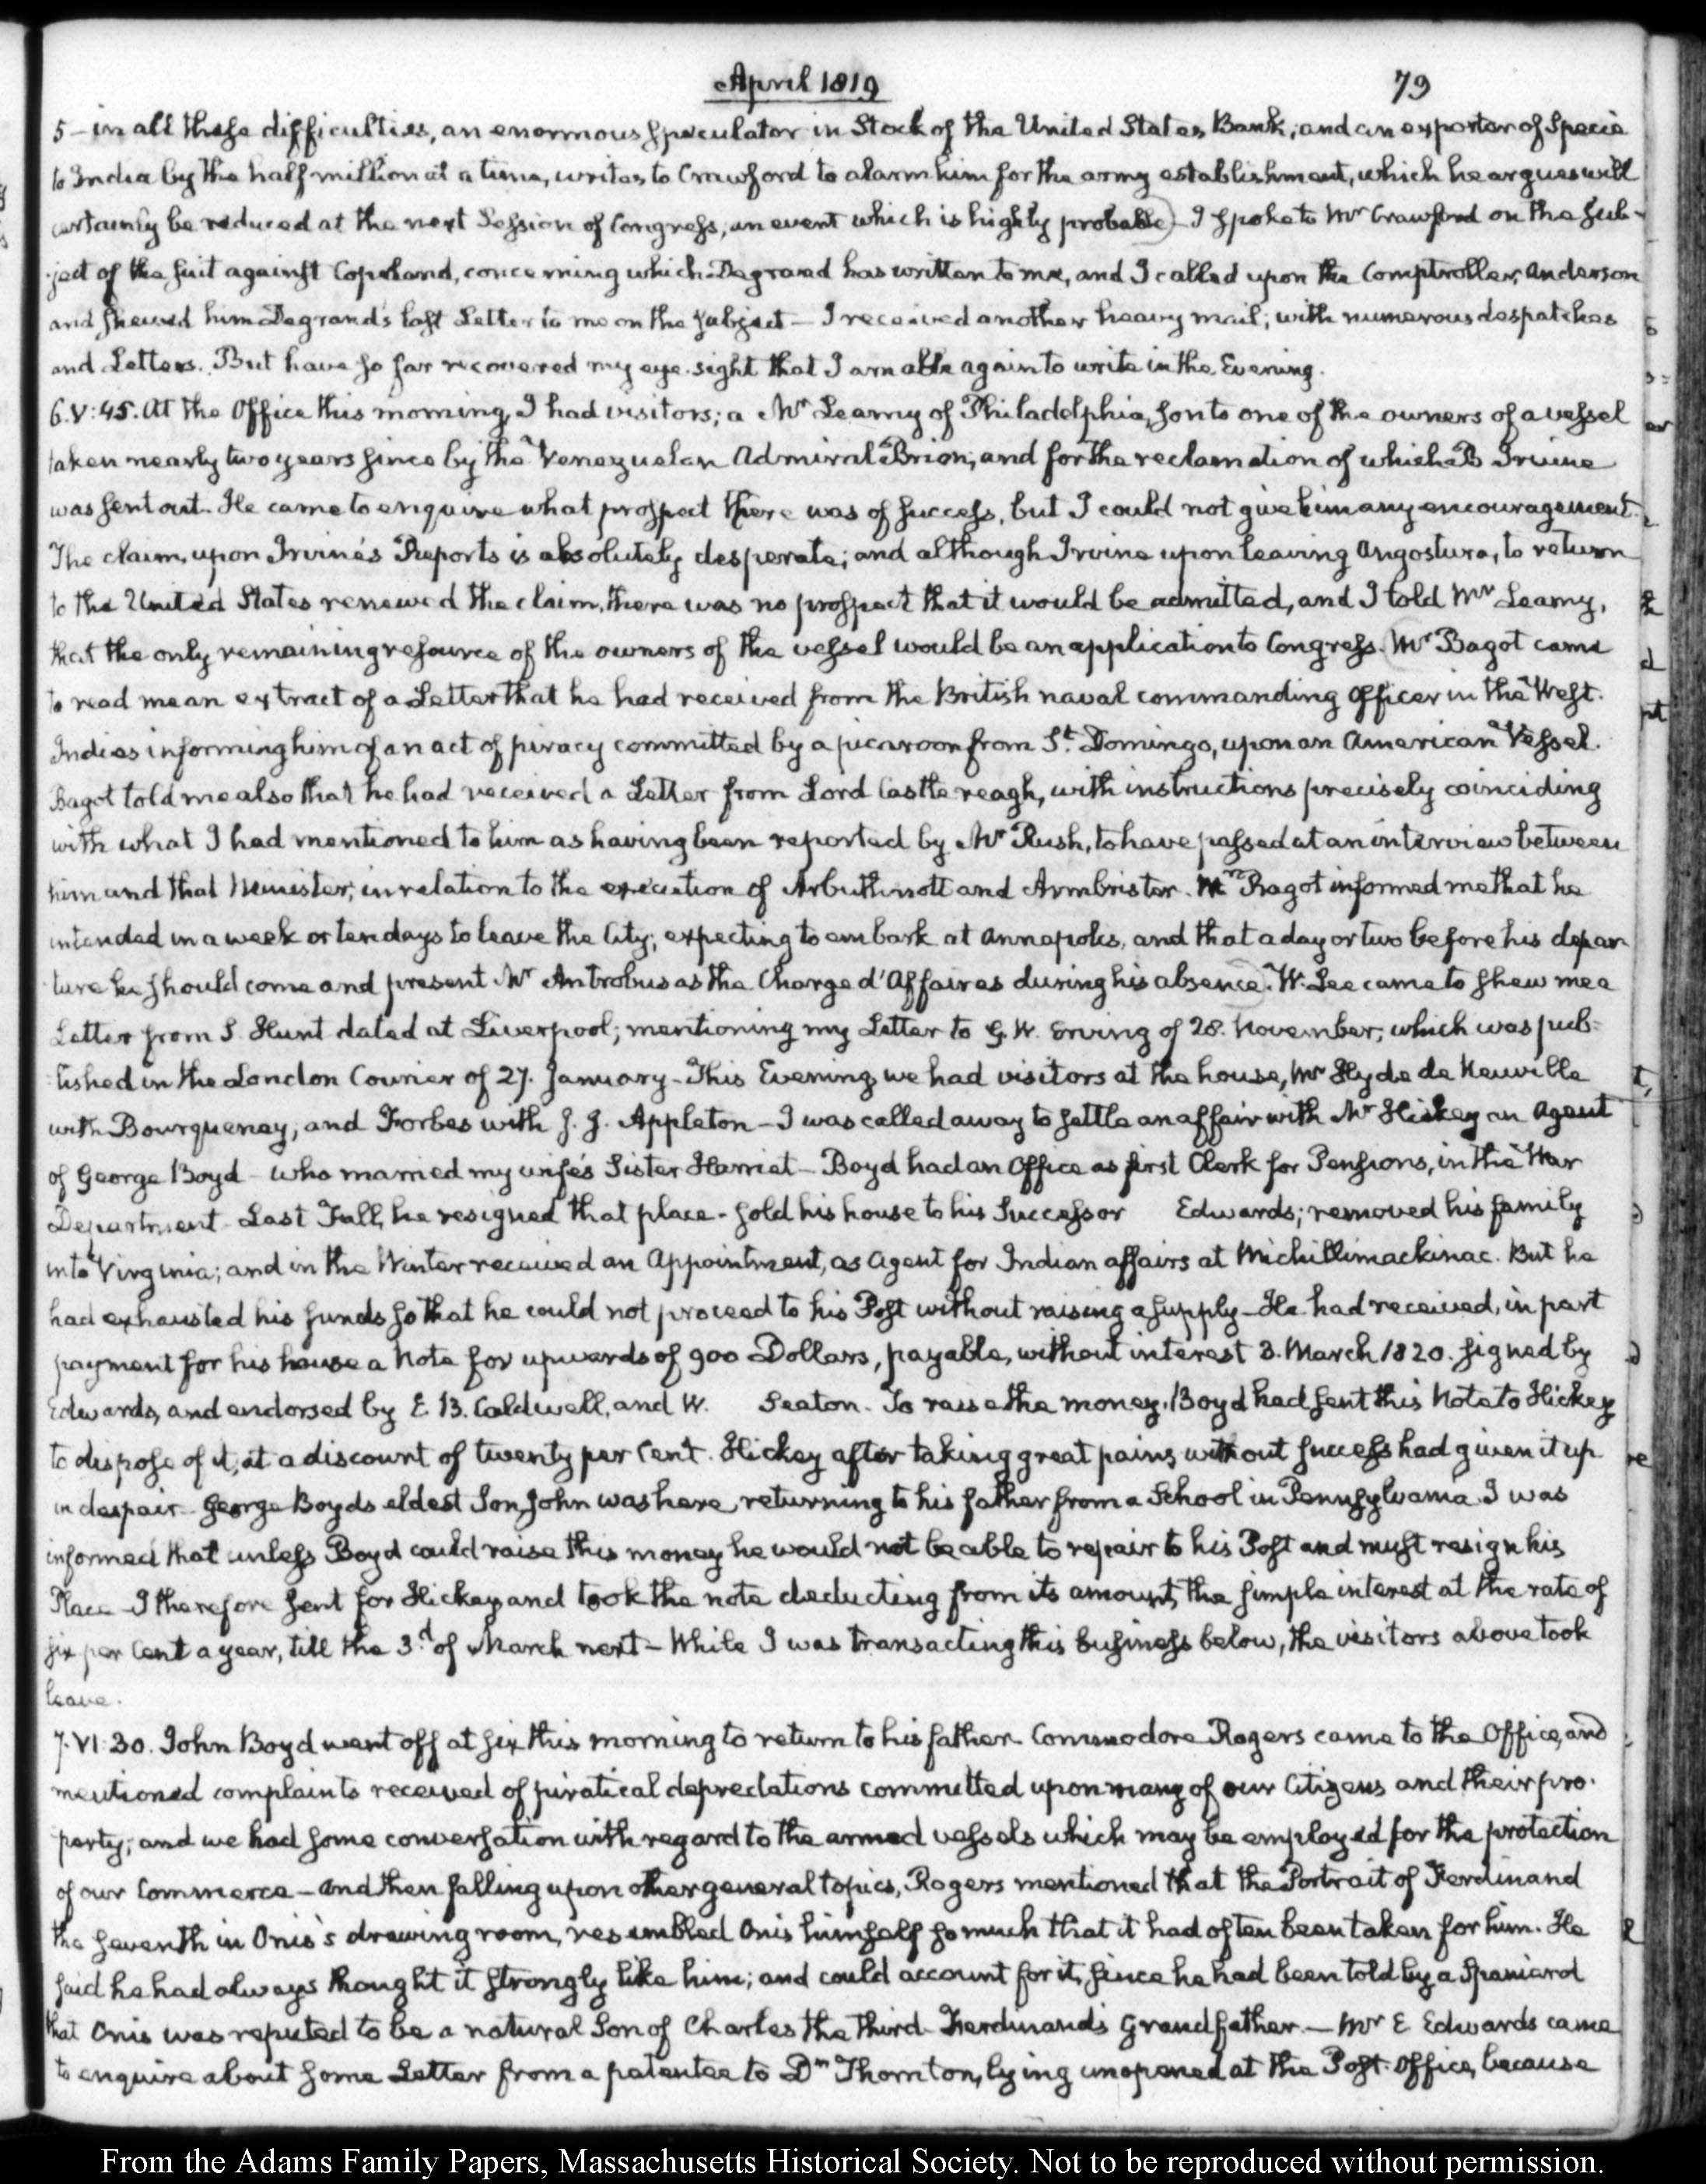 April 1819
79
5 - in all these difficulties, an enormous Speculator in Stock of the United States Bank, and an exporter of Specie
to India by the half million at a time, writes to Crawford to alarm him for the army establishment, which he argues will
certainly be reduced at the next Session of Congress, an event which is highly probable) - I spoke to Mr Crawford on the sub-
ject of the suit against Copeland, concerning which Degrand has written to me, and I called upon the Comptroller, Anderson
and shewed him Degrand's last Letter to me on the subject - I received another heavy mail; with numerous despatches
and Letters. But have so far recovered my eye-sight that I am able again to write in the Evening.
6. V: 45. At the Office this morning, I had visitors; a Mr Leamy of Philadelphia, son to one of the owners of a vessel
taken nearly two years since by the Venezuelan Admiral Brion, and for the reclamation of which B Irvine
was sent out. He came to enquire what prospect there was of success, but I could not give him any encouragement.
The claim, upon Irvine's Reports is absolutely desperate; and although Irvine upon leaving Angostura, to return
to the United States renewed the claim, there was no prospect that it would be admitted, and I told Mr Leamy,
that the only remaining resource of the owners of the vessel would be an application to Congress. (Mr Bagot came
to read me an extract of a Letter that he had received from the British naval commanding Officer in the West-
Indies informing him of an act of piracy committed by a picaroon from St Domingo, upon an American Vessel.
Bagot told me also that he had received a Letter from Lord Castlereagh, with instructions precisely coinciding
with what I had mentioned to him as having been reported by Mr Rush, to have passed at an interview between
him and that Minister; in relation to the execution of Arbuthnott and Armbrister. Mr Bagot informed me that he
intended in a week or ten days to leave the City; expecting to embark at Annapolis, and that a day or two before his depar-
ture he should come and present Mr Antrobus as the Chargé d'Affaires during his absence.) W. Lee came to shew me a
Letter from S. Hunt dated at Liverpool; mentioning my Letter to G. W. Erving of 28. November, which was pub-
lished in the London Courier of 27. January - This Evening we had visitors at the house, Mr Hyde de Neuville
with Bourqueney, and Forbes with J. J. Appleton - I was called away to settle an affair with Mr Hickey an Agent
of George Boyd - who married my wife's Sister Harriet - Boyd had an Office as first Clerk for Pensions, in the War
Department - Last Fall, he resigned that place - sold his house to his Successor Edwards; removed his family
into Virginia; and in the Winter received an Appointment, as Agent for Indian affairs at Michillimackinac. But he
had exhausted his funds so that he could not proceed to his Post without raising a supply - He had received, in part
payment for his house a Note for upwards of 900 Dollars, payable, without interest 3. March 1820. signed by
Edwards, and endorsed by E. B. Caldwell, and W. Seaton. To raise the money, Boyd had sent this Note to Hickey
to dispose of it, at a discount of twenty per Cent. Hickey after taking great pains without success had given it up
in despair - George Boyd's eldest Son, John was here, returning to his father from a School in Pennsylvania. I was
informed that unless Boyd could raise this money he would not be able to repair to his Post and must resign his
Place - I therefore sent for Hickey and took the note deducting from its amount, the simple interest at the rate of
six per Cent a year, till the 3.d of March next - While I was transacting this business below, the visitors above took
leave.
7. VI: 30. John Boyd went off at six this morning to return to his father. Commodore Rogers came to the Office, and
mentioned complaints received of piratical depredations committed upon many of our Citizens and their pro-
perty; and we had some conversation with regard to the armed vessels which may be employed for the protection
of our Commerce - and then falling upon other general topics, Rogers mentioned that the Portrait of Ferdinand
the seventh in Onis's drawing room, resembled Onis himself so much that it had often been taken for him. He
said he had always thought it strongly like him; and could account for it, since he had been told by a Spaniard
that Onis was reputed to be a natural Son of Charles the third - Ferdinand's Grandfather. - Mr E Edwards came
to enquire about some Letter from a patentee to Dr Thornton, lying unopened at the Post-Office, because
From the Adams Family Papers, Massachusetts Historical Society. Not to be reproduced without permission.